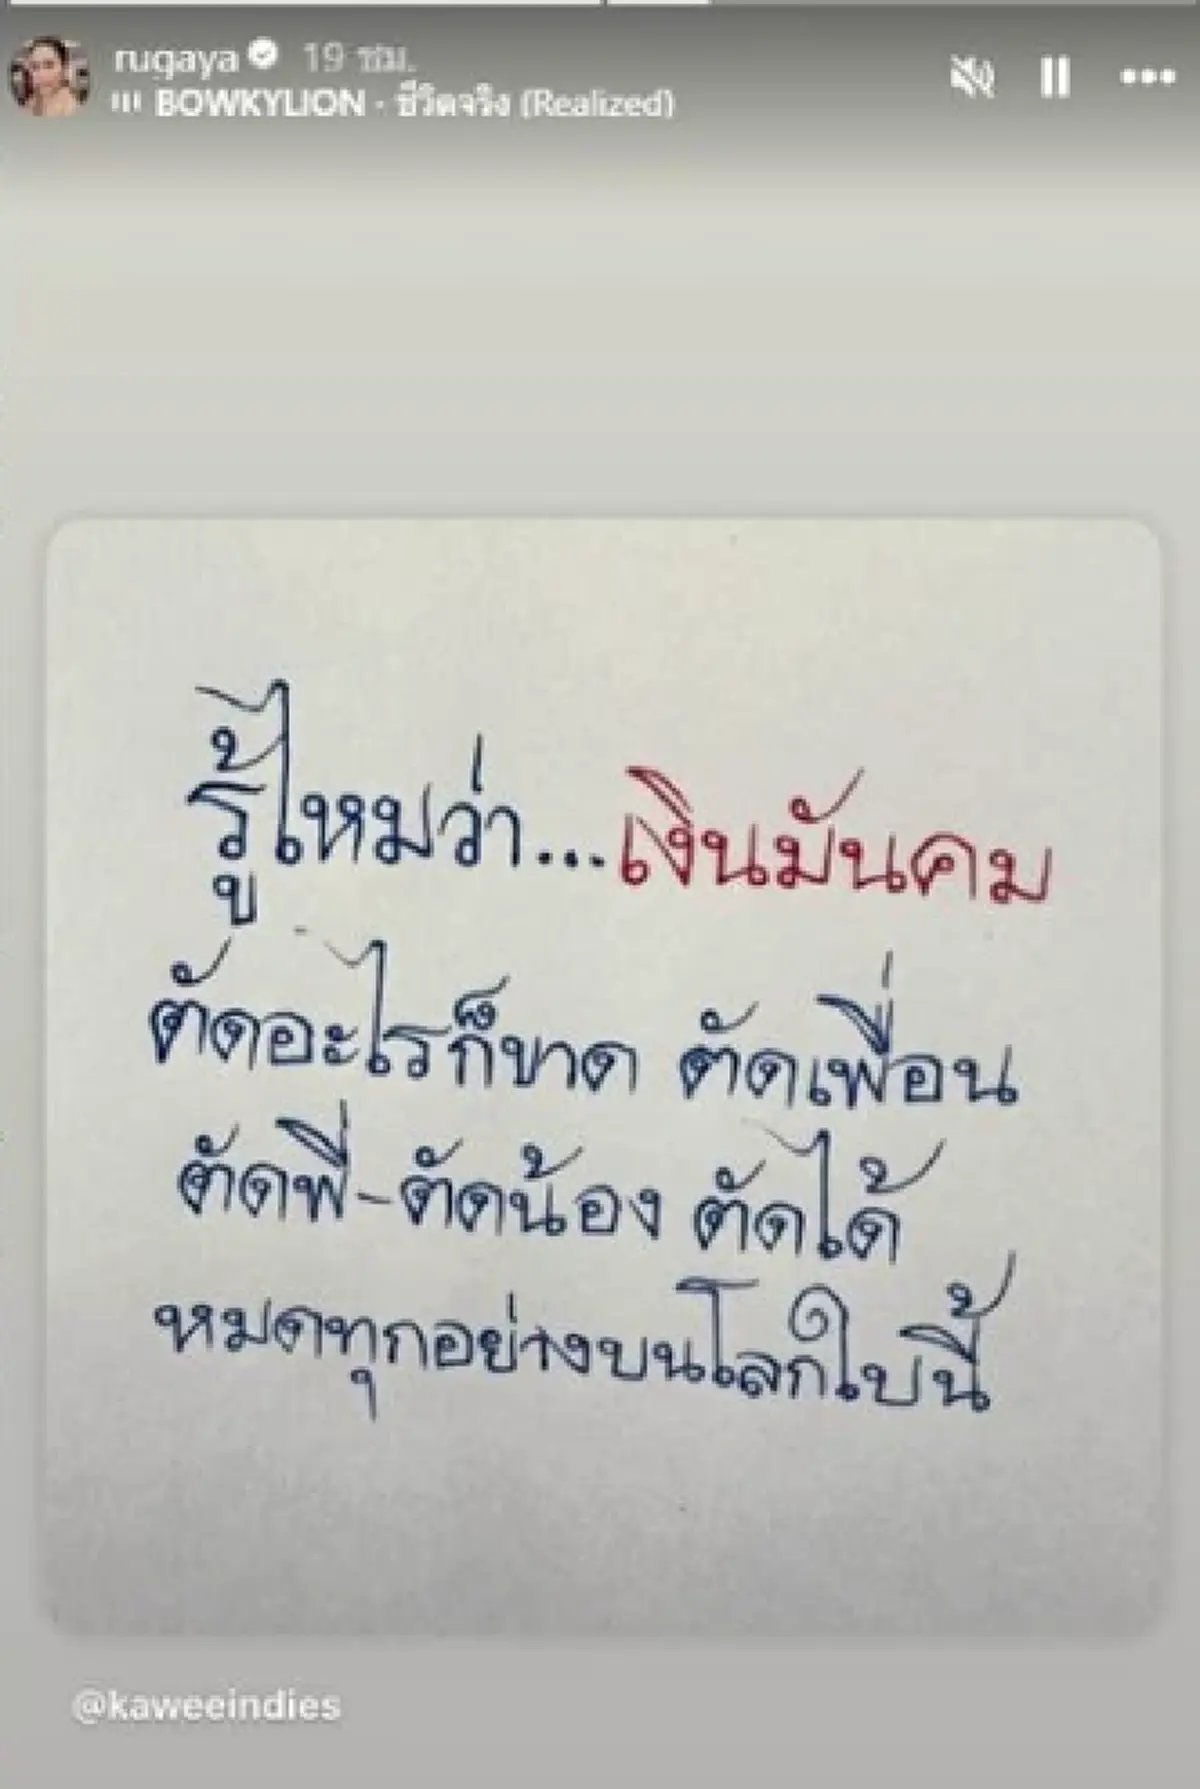 rugaya 19 ชม.
BOWKYLION · ชีวิตจริง (Realized)
รู้ไหมว่า...เงินมันคม
ตัดอะไรก็ขาด ตัดเพื่อน
ตัดพี่-ตัดน้อง ตัดได้
หมดทุกอย่างบนโลกใบนี้
@kaweeindies